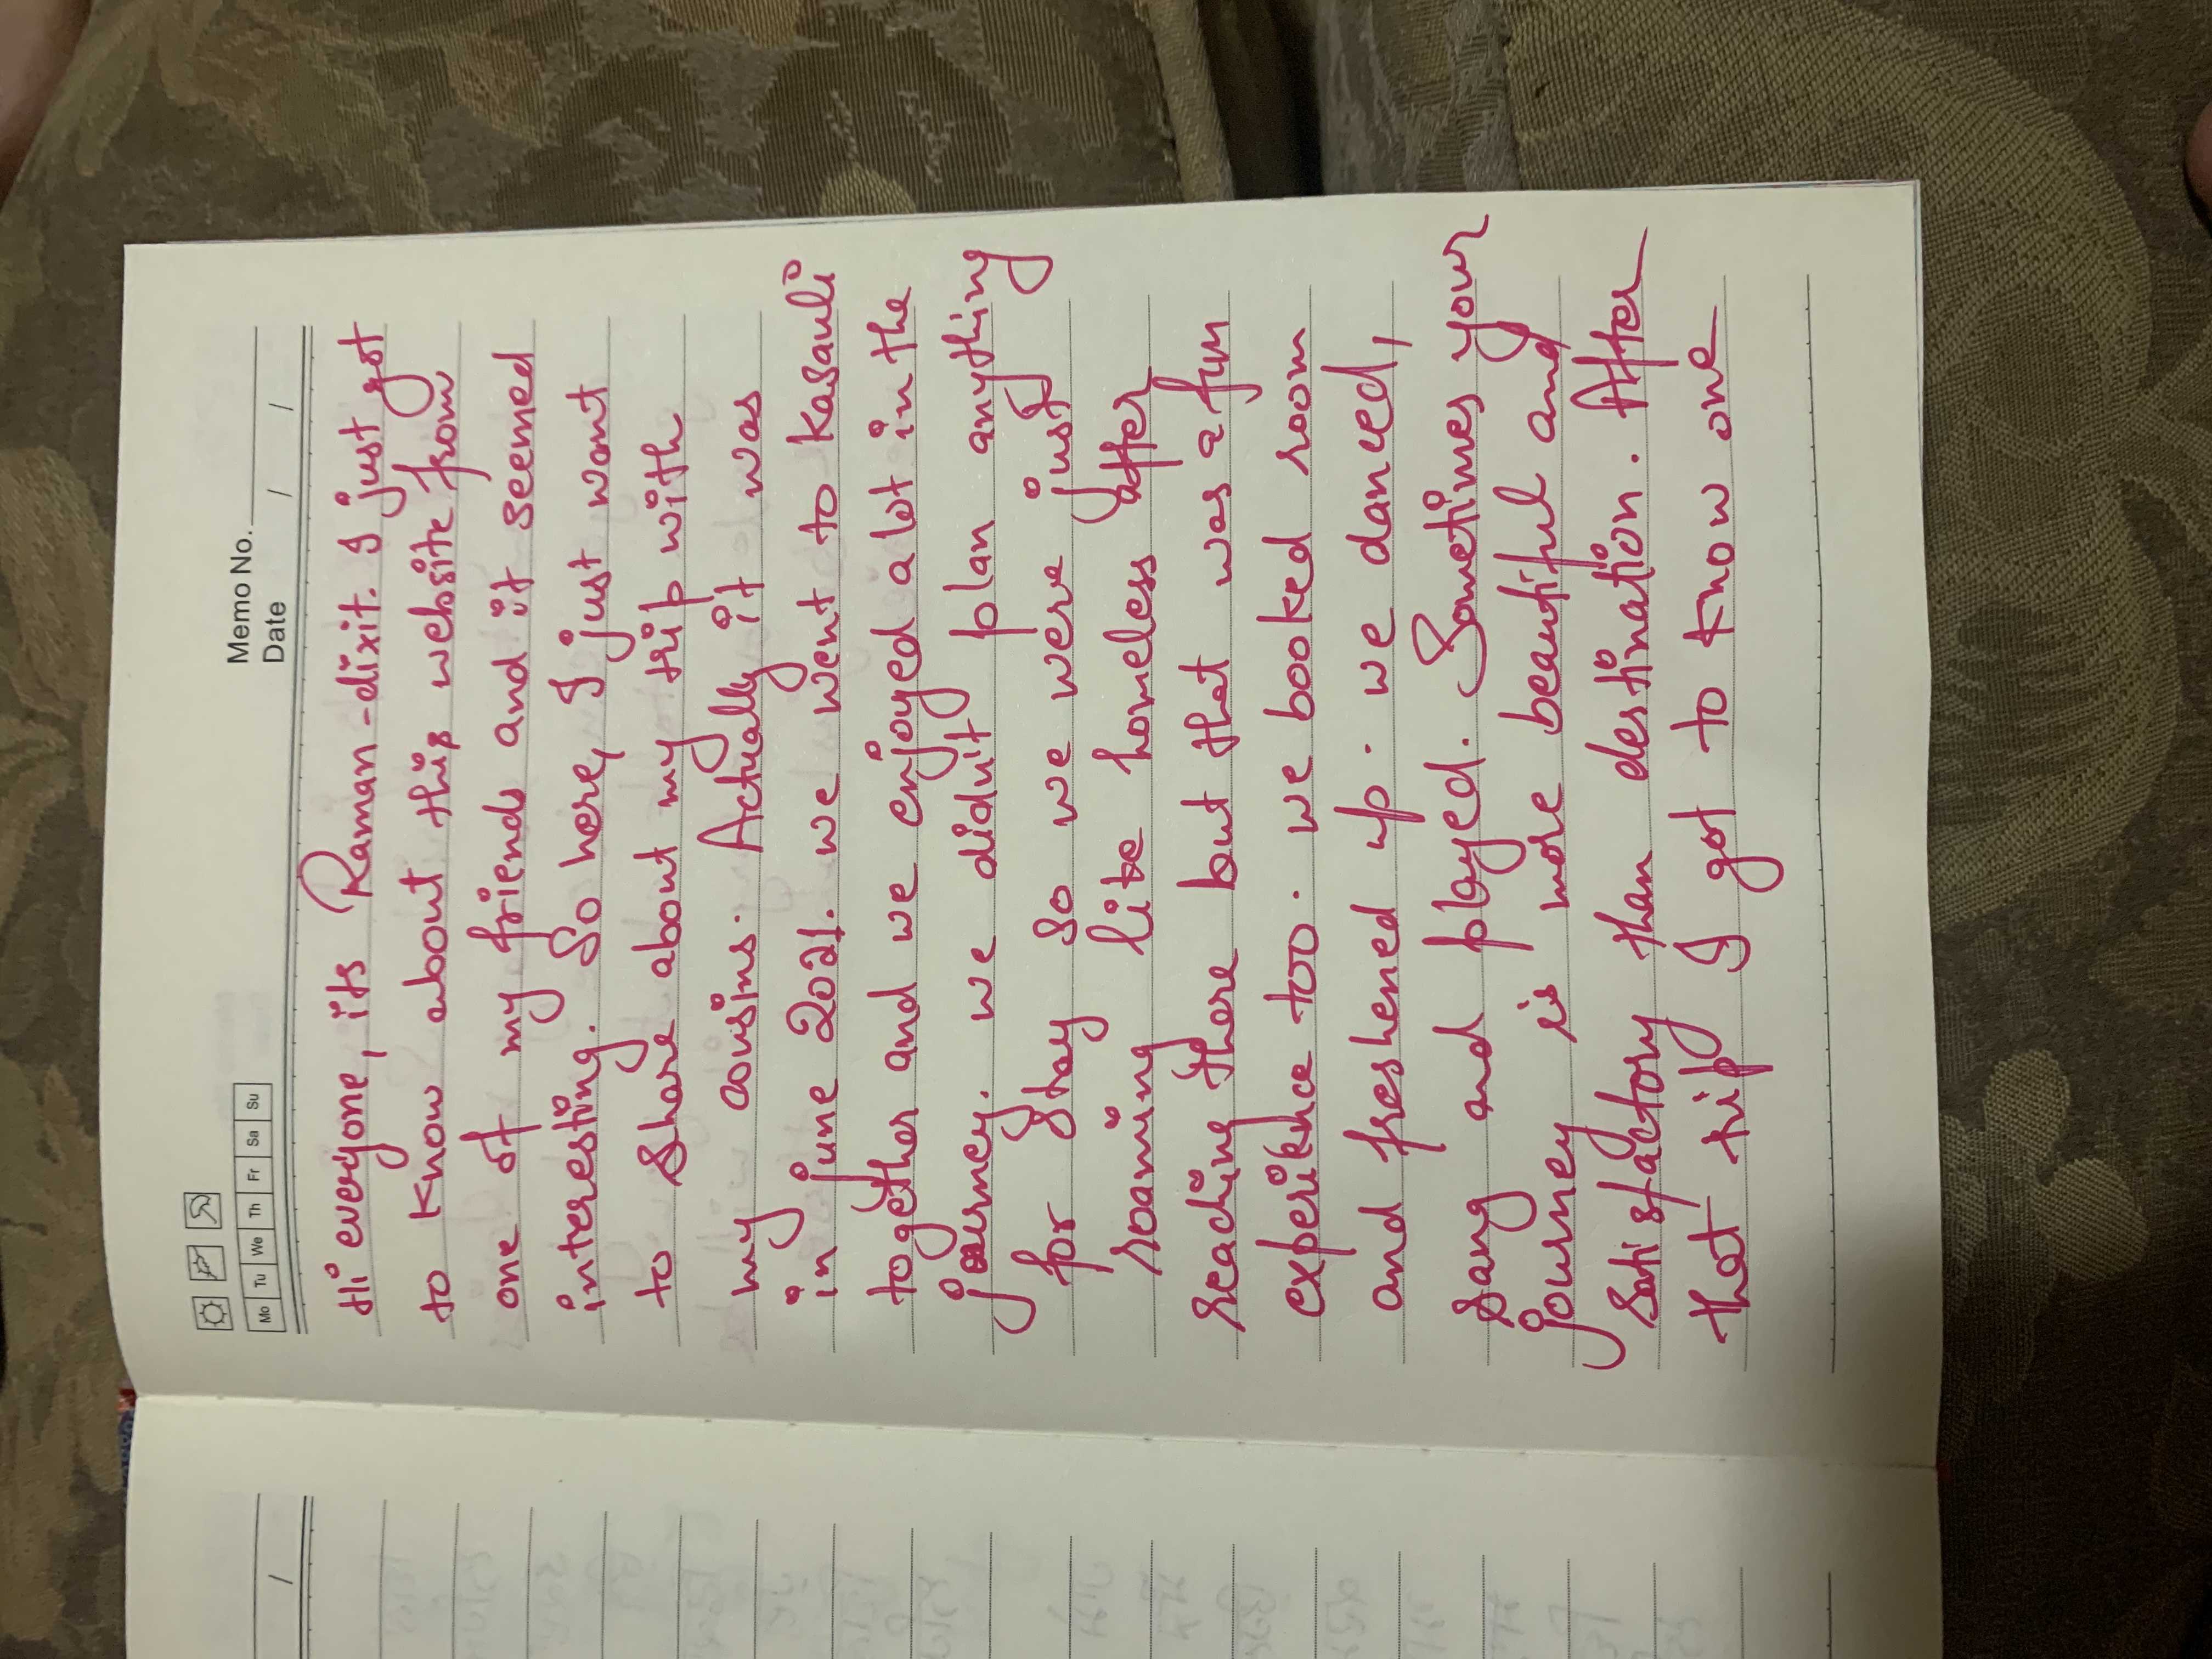 Memo No.
Date / /
Mo Tu We Th Fr Sa Su
Hi everyone, its Raman-dixit. I just got
to know about this website from
one of my friends and it seemed
interesting. So here, I just want
to share about my trip with
my cousins. Actually it was
in june 2021. we went to Kasauli
together and we enjoyed a lot in the
journey. we didn't plan anything
for stay so we were just
roaming like homeless after
reaching there but that was a fun
experience too. we booked room
and freshened up. we danced,
sang and played. Sometimes your
journey is more beautiful and
satisfactory than destination. After
that trip I got to know one
/